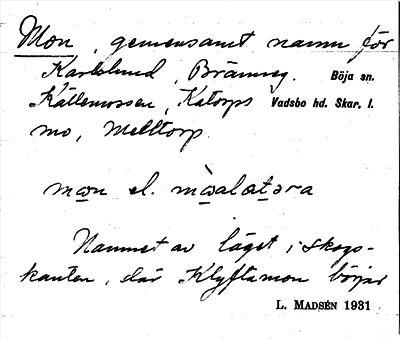 Mon, gemensamt namn för
Karlslund, Bränning. Böja sn.
Källemossen, Katorps Vadsbo hd. Skar. l.
mo, Melltorp.
mon el. màalatəra
Namnet av läget i skogs-
kanten, där Klyftamon börjar
L. MADSÉN 1931